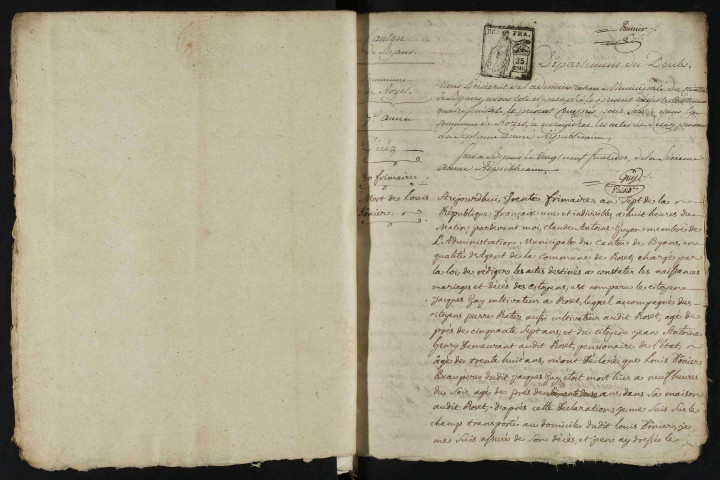 Premier
Canton
de Byans.
Commune
de Rozet
7e année
Décès
30 frimaire
Mort de Louis
Tônier.
REP. FRA.
25
Département du Doubs,
Nous Président de l'administration Municipale du Canton
de Byans, avons coté et paraphé le présent registre
feuillets, le présent pour servir dans la
Commune de Rozet, à enregistrer les actes de décès, pendant
La Septieme année Républicaine,
fait à le Vingt neuf fructidor, de la Sixieme
année Républicaine
Aujourdhui, trente frimaire, an Sept de la
République française une et indivisible, à huit heures du
Matin pardevant moi, Claude Antoine Guyon membre de
L'Administration Municipale du Canton de Byans, en
qualité d'Agent de la Commune de Roset, chargé par
la loi, de rédiger les actes destinés a constater les naissances
mariages et décès des citoyens, est comparu le citoyen
Jacques Gay cultivateur à Roset, lequel accompagné des
citoyens pierre Ratez aussi cultivateur audit Roset, agé de
près de cinquante Sept ans, et du citoyen Jean Antoine
henry Demeurant audit Roset, pensionaire de l'Etat,
âgé de trente huit ans, m'ont Déclaré que Louis Tônier
Beaupere dudit Jacques Gay étoit mort hier a neuf heures
du Soir, agé de près de Soixante douze ans, dans Sa maison
audit Roset, d'après cette Déclaration, je me Suis Sur le
champ transporté au domicile dudit Louis Tônier, je
me Suis assuré de Son décès, et j'en ay dressé le